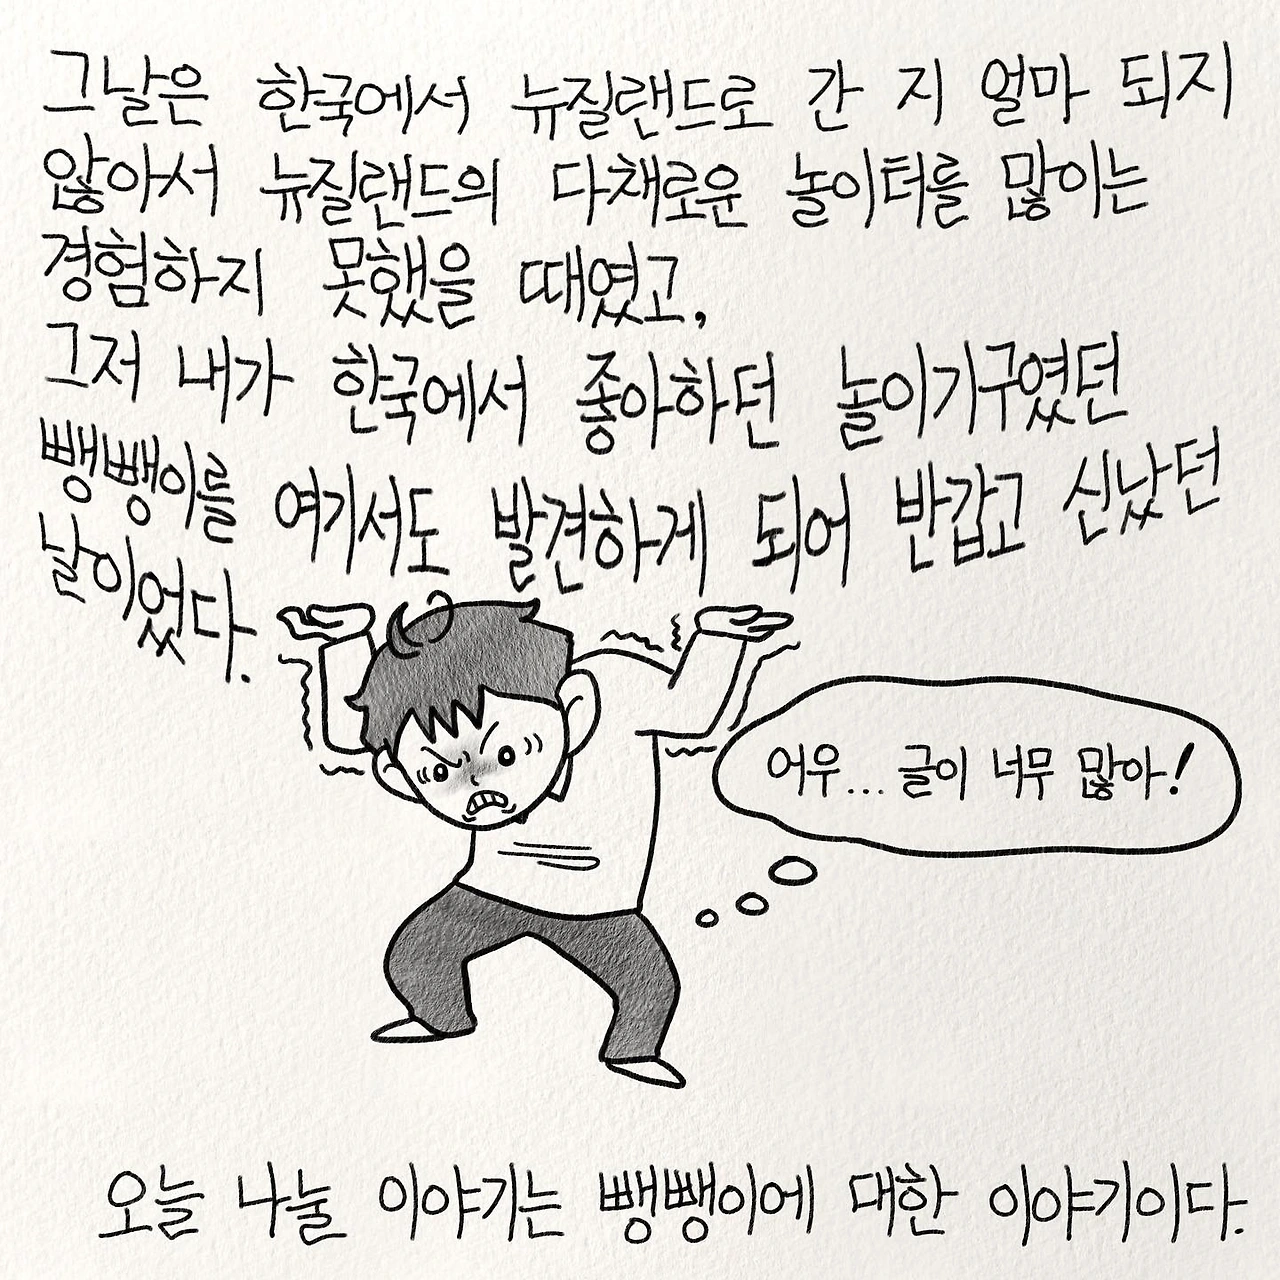 그날은 한국에서 뉴질랜드로 간 지 얼마 되지
않아서 뉴질랜드의 다채로운 놀이터를 많이는
경험하지 못했을 때였고,
그저 내가 한국에서 좋아하던 놀이기구였던
뺑뺑이를 여기서도 발견하게 되어 반갑고 신났던
날이었다.
어우... 글이 너무 많아!
오늘 나눌 이야기는 뺑뺑이에 대한 이야기이다.